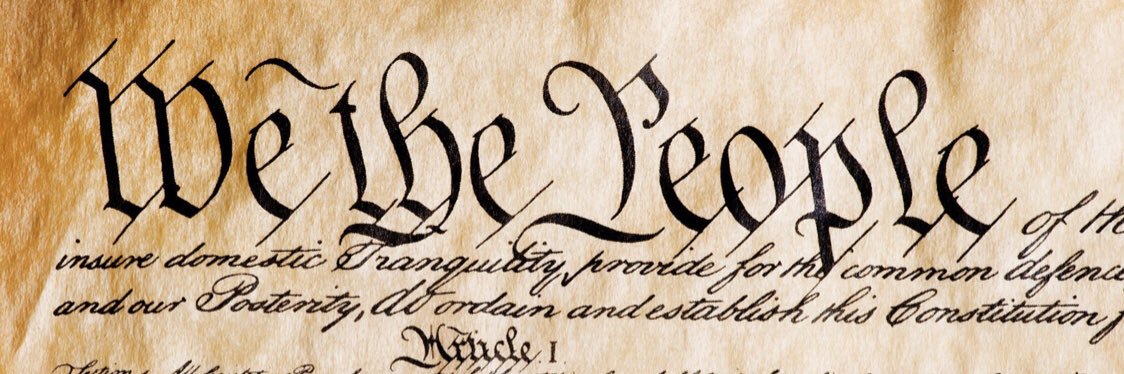 We the People of the
insure domestic Tranquility, provide for the common defence
and our Posterity, do ordain and establish this Constitution f
Article. I.